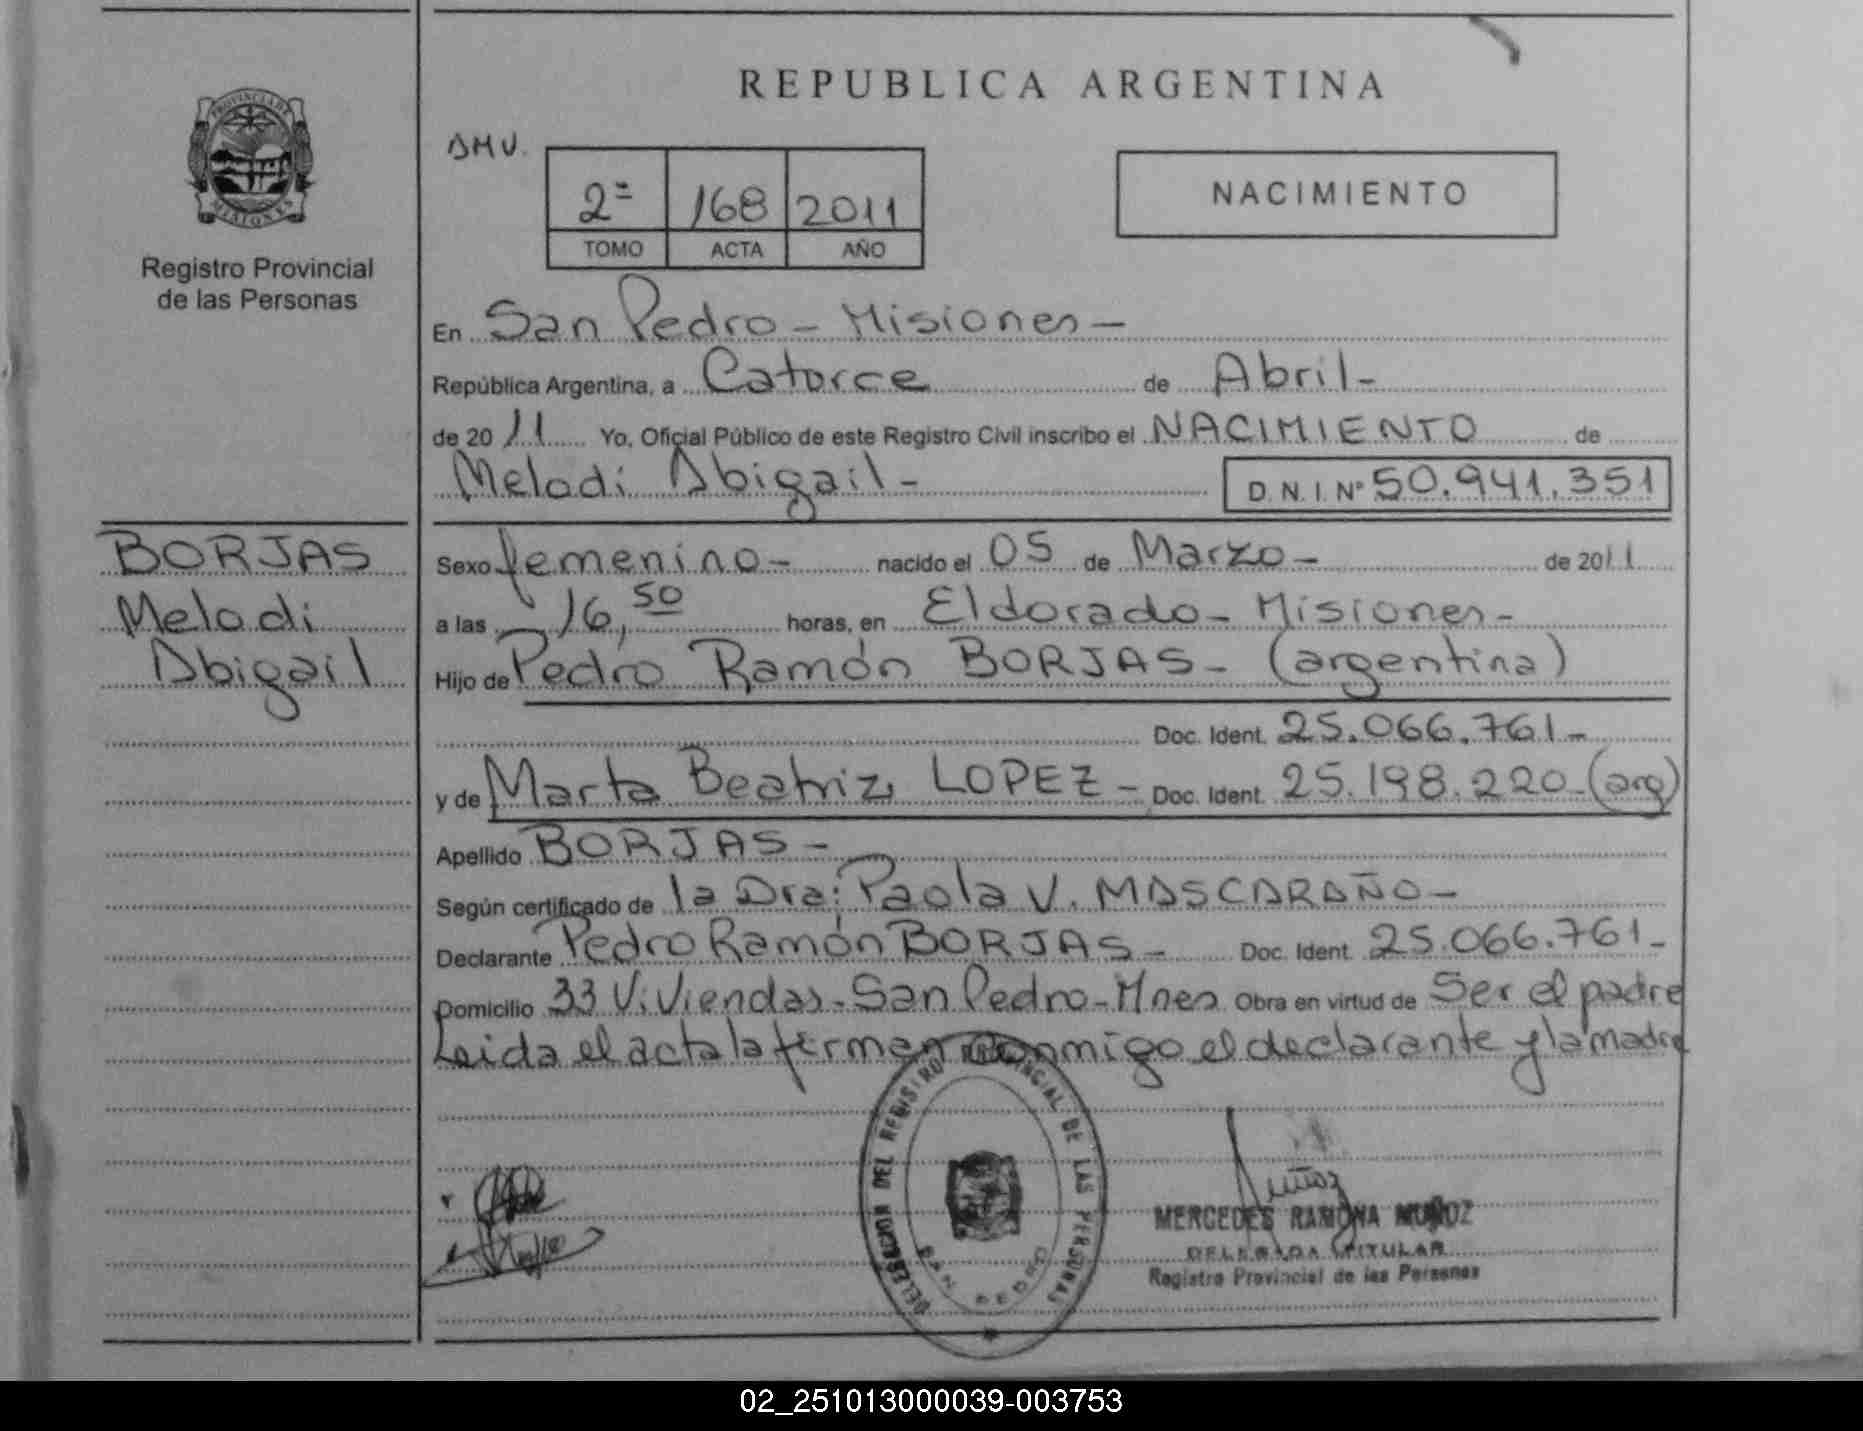 REPUBLICA ARGENTINA
PROVINCIA DE
MISIONES
Registro Provincial
de las Personas
DMV.
2º 168 2011
TOMO ACTA AÑO
NACIMIENTO
En San Pedro - Misiones -
República Argentina, a Catorce de Abril -
de 2011 Yo, Oficial Público de este Registro Civil inscribo el NACIMIENTO de
Melodi Abigail - D.N.I. Nº 50.941.351
BORJAS
Melodi
Abigail
Sexo femenino - nacido el 05 de Marzo - de 2011
a las 16,50 horas, en Eldorado - Misiones -
Hijo de Pedro Ramón BORJAS - (argentina)
Doc. Ident. 25.066.761 -
y de Marta Beatriz LOPEZ - Doc. Ident. 25.198.220 - (arg)
Apellido BORJAS -
Según certificado de la Dra: Paola V. MASCARAÑO -
Declarante Pedro Ramón BORJAS - Doc. Ident. 25.066.761 -
Domicilio 33 Viviendas - San Pedro - Mnes Obra en virtud de Ser el padre
Leida el acta la firman conmigo el declarante y la madre
DELEGACION DEL REGISTRO PROVINCIAL DE LAS PERSONAS
SAN PEDRO
Muñoz
MERCEDES RAMONA MUÑOZ
DELEGADA TITULAR
Registro Provincial de las Personas
02_251013000039-003753